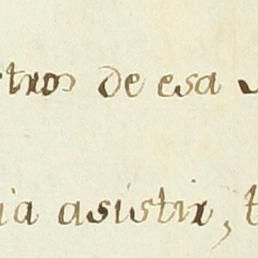 tros de esa
ia asistir, t